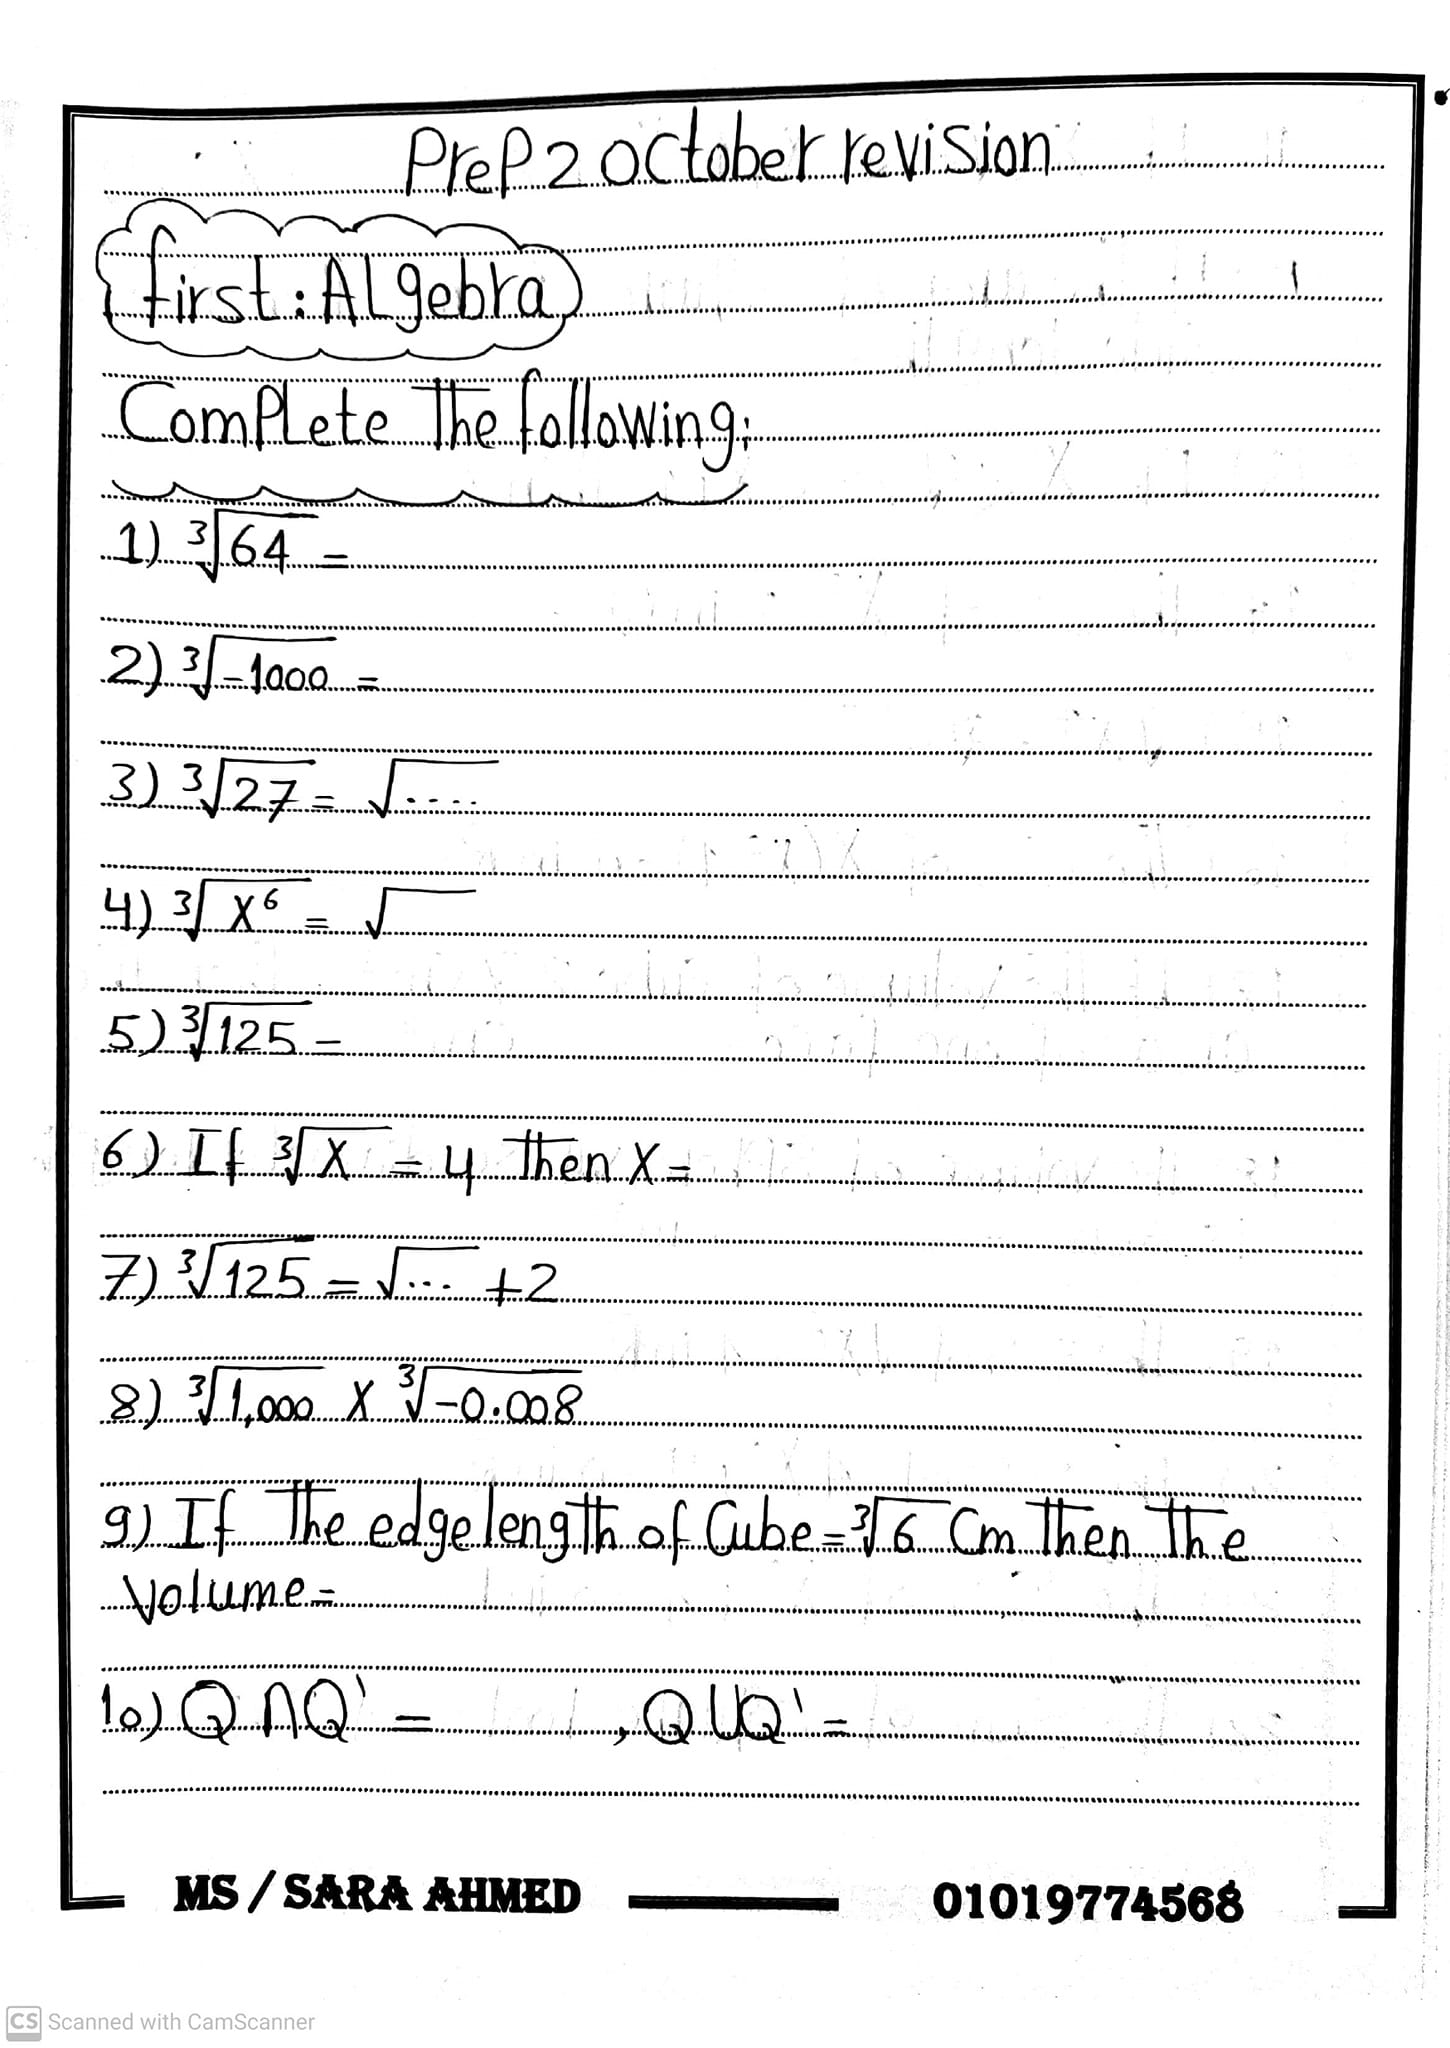 PreP 2 october revision
first: ALgebra
ComPLete The following:
1) ³√64 =
2) ³√-1000 =
3) ³√27 = √....
4) ³√X⁶ = √
5) ³√125 =
6) If ³√X = 4 Then X =
7) ³√125 = √... +2
8) ³√1,000 X ³√-0.008
9) If The edge length of Cube = ³√6 Cm Then The
Volume =
10) Q ∩ Q' = , Q U Q' =
MS / SARA AHMED 01019774568
CS Scanned with CamScanner